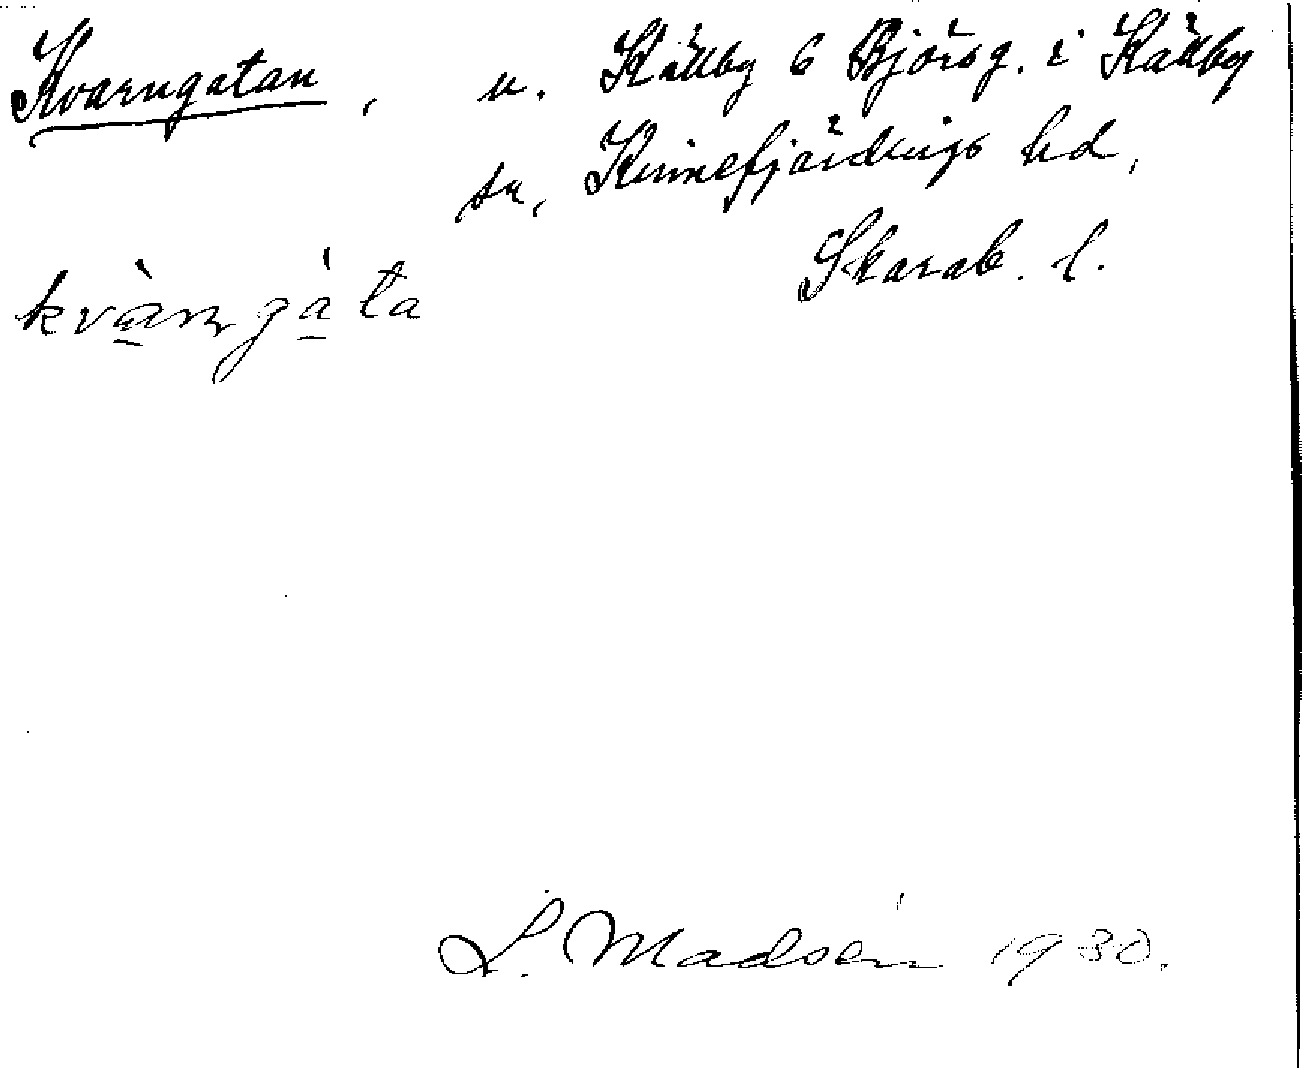 Kvarngatan, u. Källby 6 Björsg. i Källby
sn, Kinnefjärdings hd,
Skarab. l.
kvàrngáta
L. Madsén 1930.